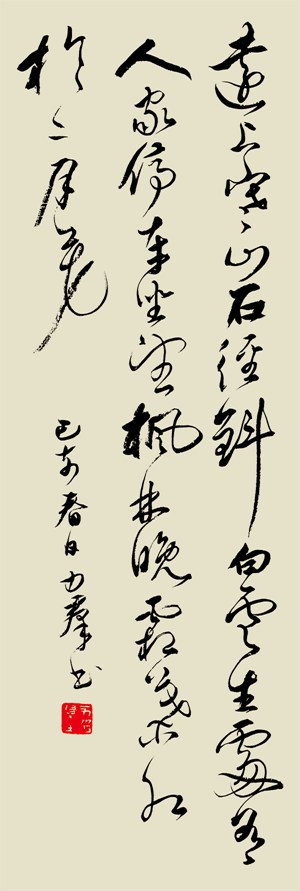 遠上寒山石徑斜白雲生處有
人家停車坐愛楓林晚霜葉紅
於二月花
己亥春日力羣书